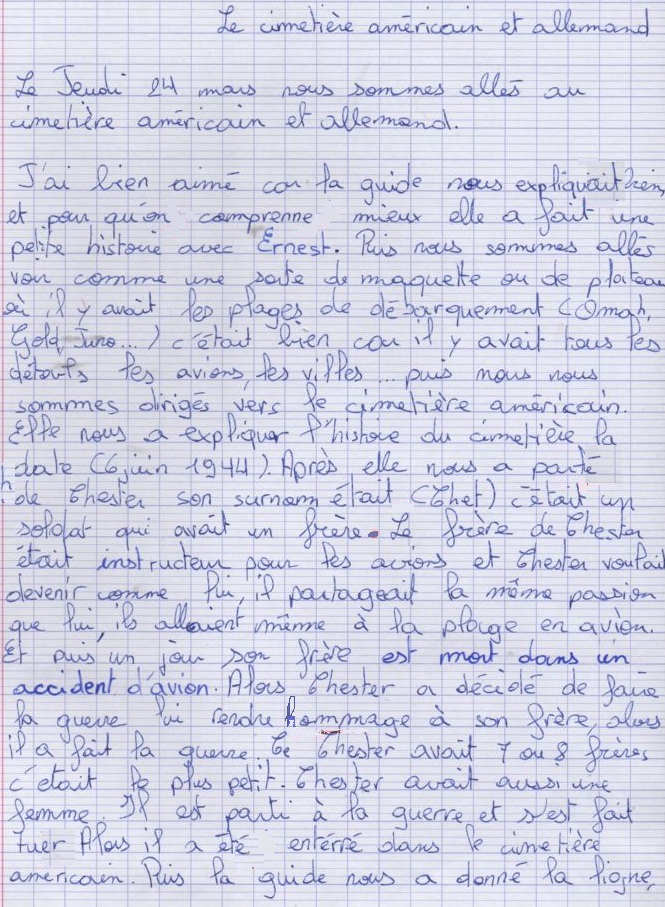 Le cimetière américain et allemand
Le Jeudi 24 mars nous sommes allés au
cimetière américain et allemand.
J'ai bien aimé car la guide nous expliquait bien,
et pour qu'on comprenne mieux elle a fait une
petite histoire avec Ernest. Puis nous sommes allés
voir comme une sorte de maquette ou de plateau
où il y avait les plages de débarquement (Omah,
Gold, Juno...) c'était bien car il y avait tous les
détails les avions, les villes... puis nous nous
sommes dirigés vers le cimetière américain.
Elle nous a expliquer l'histoire du cimetière, la
date (6 juin 1944). Après elle nous a parlé
de Chester son surnom était (Chet) c'était un
soldat qui avait un frère. Le frère de Chester
était instructeur pour les avions et Chester voulait
devenir comme lui, il partageait la même passion
que lui, ils allaient même à la plage en avion.
Et puis un jour son frère est mort dans un
accident d'avion. Alors Chester a décidé de faire
la guerre lui rendre hommage à son frère, alors
il a fait la guerre. Ce Chester avait 7 ou 8 frères
c'était le plus petit. Chester avait aussi une
femme. Il est parti à la guerre et s'est fait
tuer Alors il a été entérré dans le cimetière
americain. Puis la guide nous a donné la ligne,